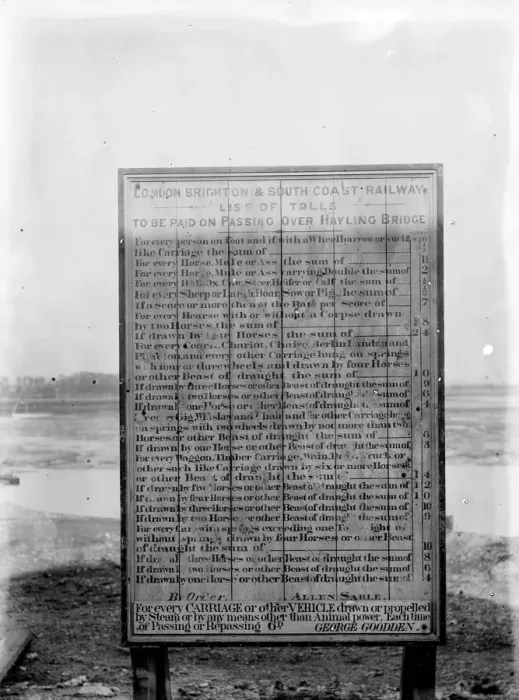 LONDON BRIGHTON & SOUTH COAST RAILWAY.
LIST OF TOLLS
TO BE PAID ON PASSING OVER HAYLING BRIDGE
For every person on foot and if with a Wheelbarrow or such
like Carriage the sum of
For every Horse, Mule or Ass the sum of
For every Horse, Mule or Ass carrying Double the sum of 2
For every Cow, Steer Heifer or Calf the sum of
For every Sheep or Lamb Boar, Sow or Pig the sum of
If a score or more then at the Rate per Score of 7
For every Hearse with or without a Corpse drawn
by two Horses the sum of 8
If drawn by four Horses the sum of 2 4
For every Coach, Chariot, Chaise Berlin Landau and
Phaeton, and every other Carriage hung on springs
with four or three wheels and drawn by four Horses
or other Beast of draught the sum of 1 0
If drawn by three Horses or other Beast of draught the sum of 9
If drawn by two Horses or other Beast of draught the sum of 6
If drawn by one Horse or other Beast of draught the sum of 4
every Gig, Whisky and Chair and other Carriage hung
on springs with two wheels drawn by not more than two
Horses, or other Beast of draught the sum of 6
If drawn by one Horse or other Beast of draught the sum of 3
For every Waggon, Timber Carriage, Wain, Dray, Truck or
other such like Carriage drawn by six or more Horses
or other Beast of draught the sum of 1 4
If drawn by five Horses or other Beast of draught the sum of 1 2
If drawn by four Horses or other Beast of draught the sum of 1 0
If drawn by three Horses or other Beast of draught the sum of 10
If drawn by two Horses or other Beast of draught the sum of 9
For every Cart with springs exceeding one or
without springs drawn by four Horses or other Beast
of draught the sum of 10
If drawn three Horses or other Beast of draught the sum of 8
If drawn by two Horses or other Beast of draught the sum of 6
If drawn by one Horse or other Beast of draught the sum of 4
By Order, ALLEN SARLE.
For every CARRIAGE or other VEHICLE drawn or propelled
by Steam or by any means other than Animal power, Each time
of Passing or Repassing 6D GEORGE GOODDEN.